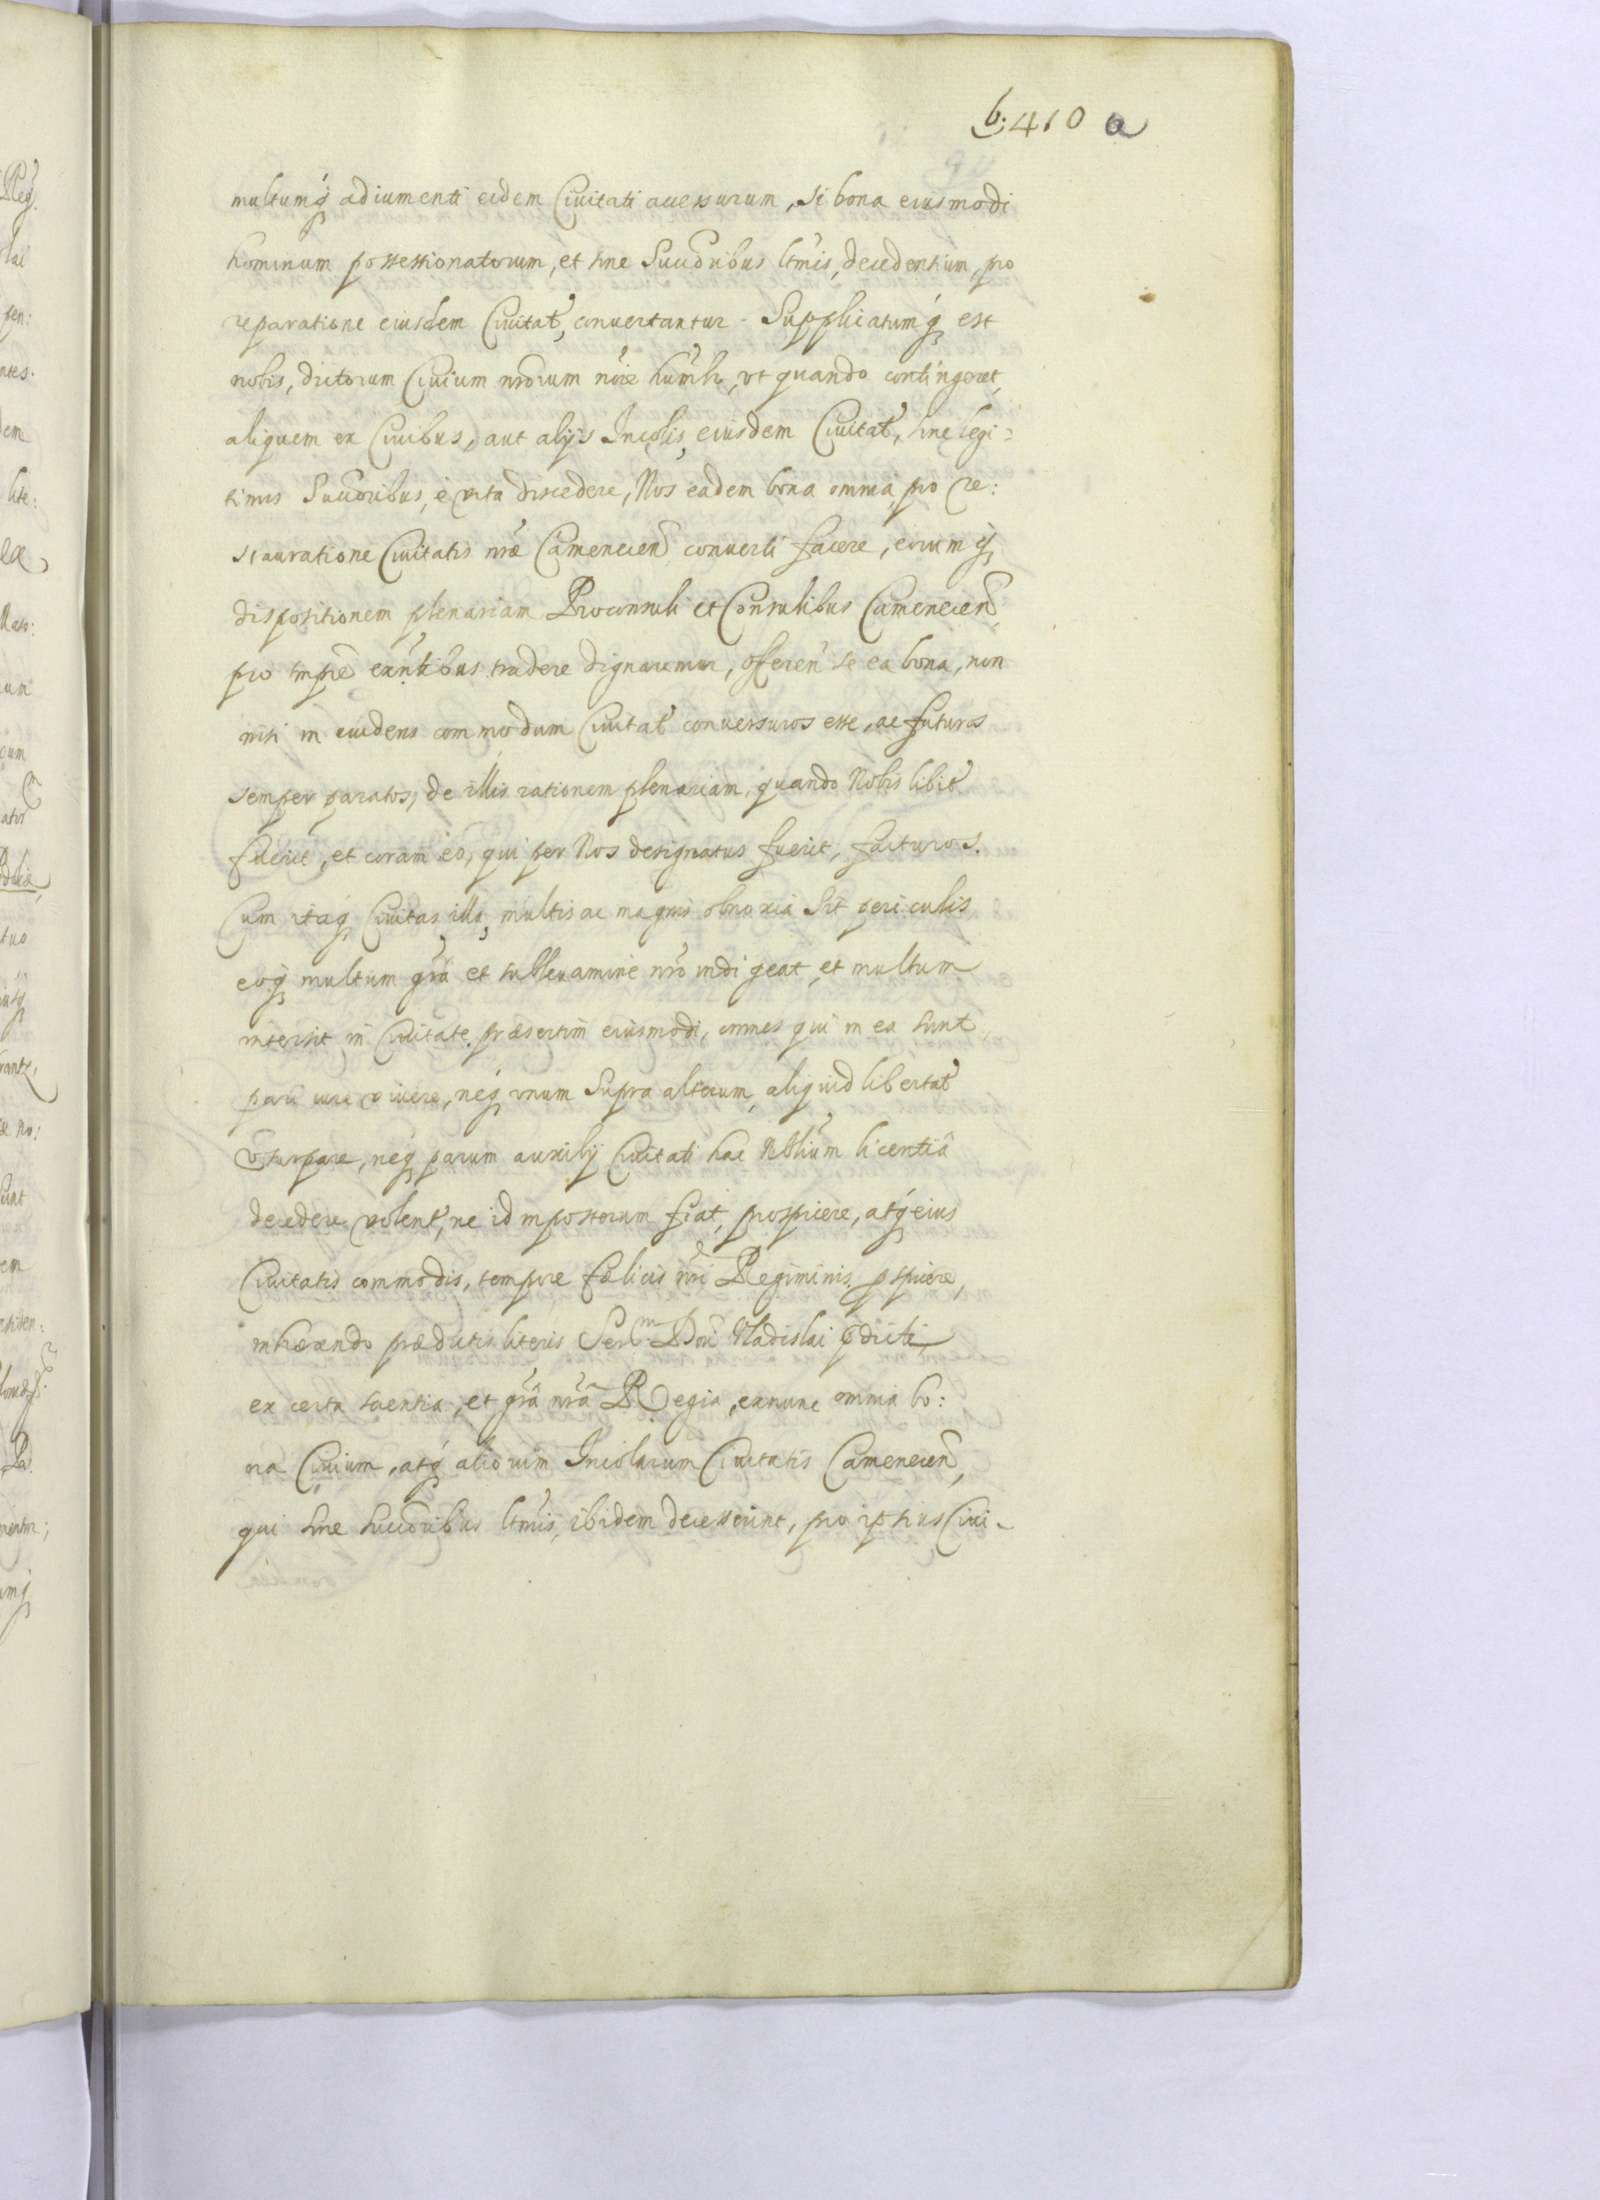 b. 410 a
multumq adiumenti eidem Ciuitati accessurum, si bona eiusmodi
hominum possessionatorum, et sine Succoribus ltmis, decedentium, pro
reparatione eiusdem Ciuitat, conuertantur. Supplicatumq est
nobis, dictorum Ciuium nrorum noie humlr, vt quando contingeret,
aliquem ex Ciuibus, aut alijs Incolis eiusdem Ciuitat, sine legi:
timis Succoribus, è vita discedere, Nos eadem bona omnia, pro re:
stauratione Ciuitatis nræ Camenecen conuerti facere, eorumq
dispositionem plenariam Proconsuli et Consulibus Camenecen,
pro tmpre exntibus tradere dignaremur, offeren se ea bona, non
nisi in euidens commodum Ciuitat conuersuros esse, ac futuros
semper paratos, de illis rationem plenariam, quando Nobis libit
fuerit, et coram eo, qui per Nos designatus fuerit, facturos.
Cum itaq Ciuitas illa, multis ac magnis obnoxia sit periculis
eoq multum gra et subleuamine nro indigeat, et multum
intersit in Ciuitate præsertim eiusmodi, omnes qui in ea sunt
pari iure viuere, neq vnum supra alterum, aliquid libertat
vsurpare, neq parum auxilij Ciuitati hac Nblium licentiâ
decedere volent, ne id inposterum fiat, prospicere, atq eius
Ciuitatis commodis, tempore fælicis nri Regiminis pspicere,
inhærendo prædictis literis Serm Dni Vladislai pdicti,
ex certa scientia, et gra nra Regia, exnunc omnia bo:
na Ciuium, atq aliorum Incolarum Ciuitatis Camenecen,
qui sine succoribus ltmis, ibidem decesserint, pro ipsius Ciui-